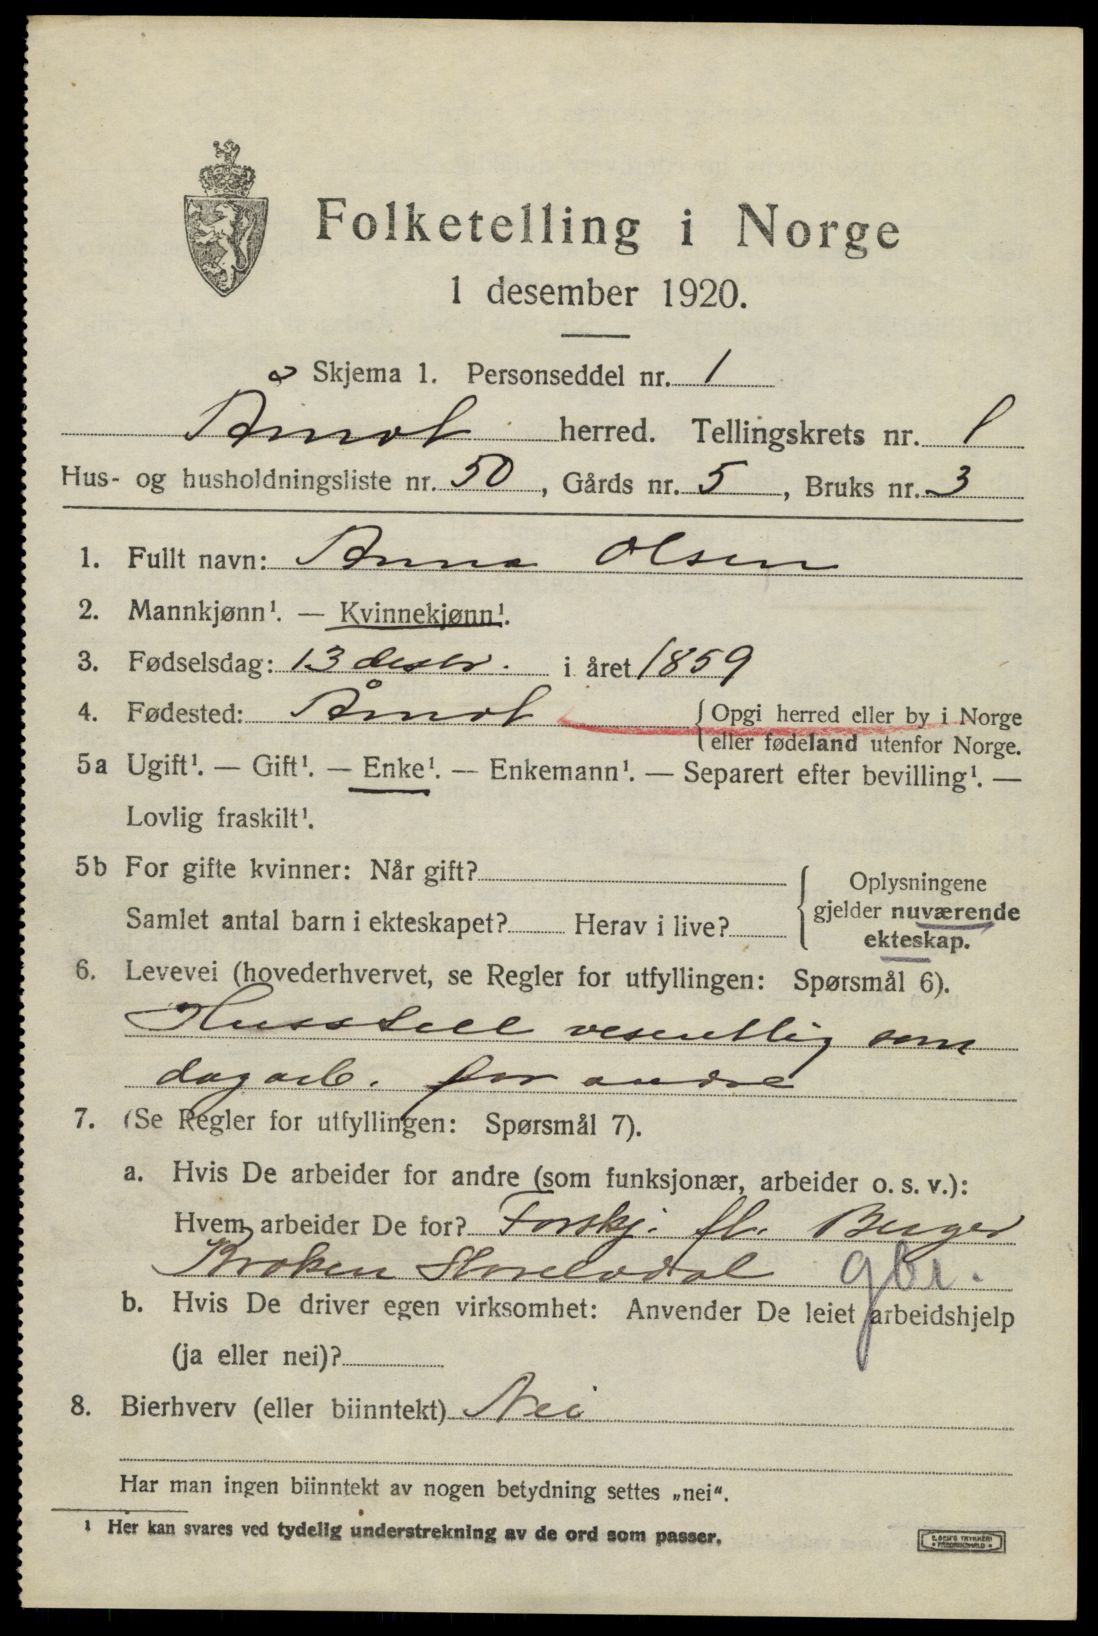 Folketelling i Norge
1 desember 1920.
Skjema 1. Personseddel nr. 1
Åmot herred. Tellingskrets nr. 1
Hus- og husholdningsliste nr. 50, Gårds nr. 5, Bruks nr. 3
1. Fullt navn: Anna Olsen
2. Mannkjønn¹. — Kvinnekjønn¹.
3. Fødselsdag: 13 desbr. i året 1859
4. Fødested: Åmot {Opgi herred eller by i Norge
eller fødeland utenfor Norge.
5a Ugift¹. — Gift¹. — Enke¹. — Enkemann¹. — Separert efter bevilling¹. —
Lovlig fraskilt¹.
5b For gifte kvinner: Når gift?
Samlet antal barn i ekteskapet? Herav i live?
{Oplysningene
gjelder nuværende
ekteskap.
6. Levevei (hovederhvervet, se Regler for utfyllingen: Spørsmål 6).
Husstell vesentlig som
dagarb. for andre
7. (Se Regler for utfyllingen: Spørsmål 7).
a. Hvis De arbeider for andre (som funksjonær, arbeider o. s. v.):
Hvem arbeider De for? Forskj.
gbr.
b. Hvis De driver egen virksomhet: Anvender De leiet arbeidshjelp
(ja eller nei)?
8. Bierhverv (eller biinntekt) Nei
Har man ingen biinntekt av nogen betydning settes „nei“.
¹ Her kan svares ved tydelig understrekning av de ord som passer.